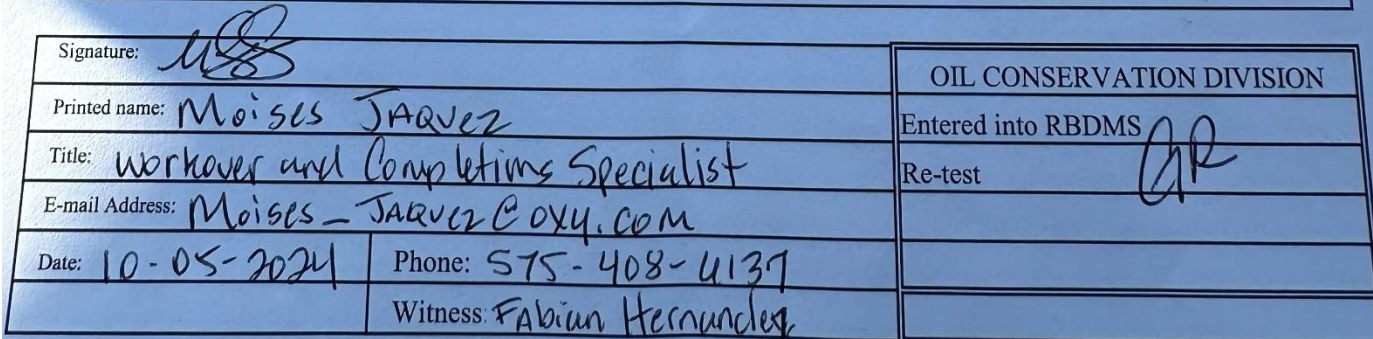 Signature:
Printed name: Moises JAQUEZ
Title: Workover and Completions Specialist
E-mail Address: Moises_JAQUEZ@OXY.COM
Date: 10-05-2024 Phone: 575-408-4137
Witness: FAbian Hernandez
OIL CONSERVATION DIVISION
Entered into RBDMS
Re-test
GR